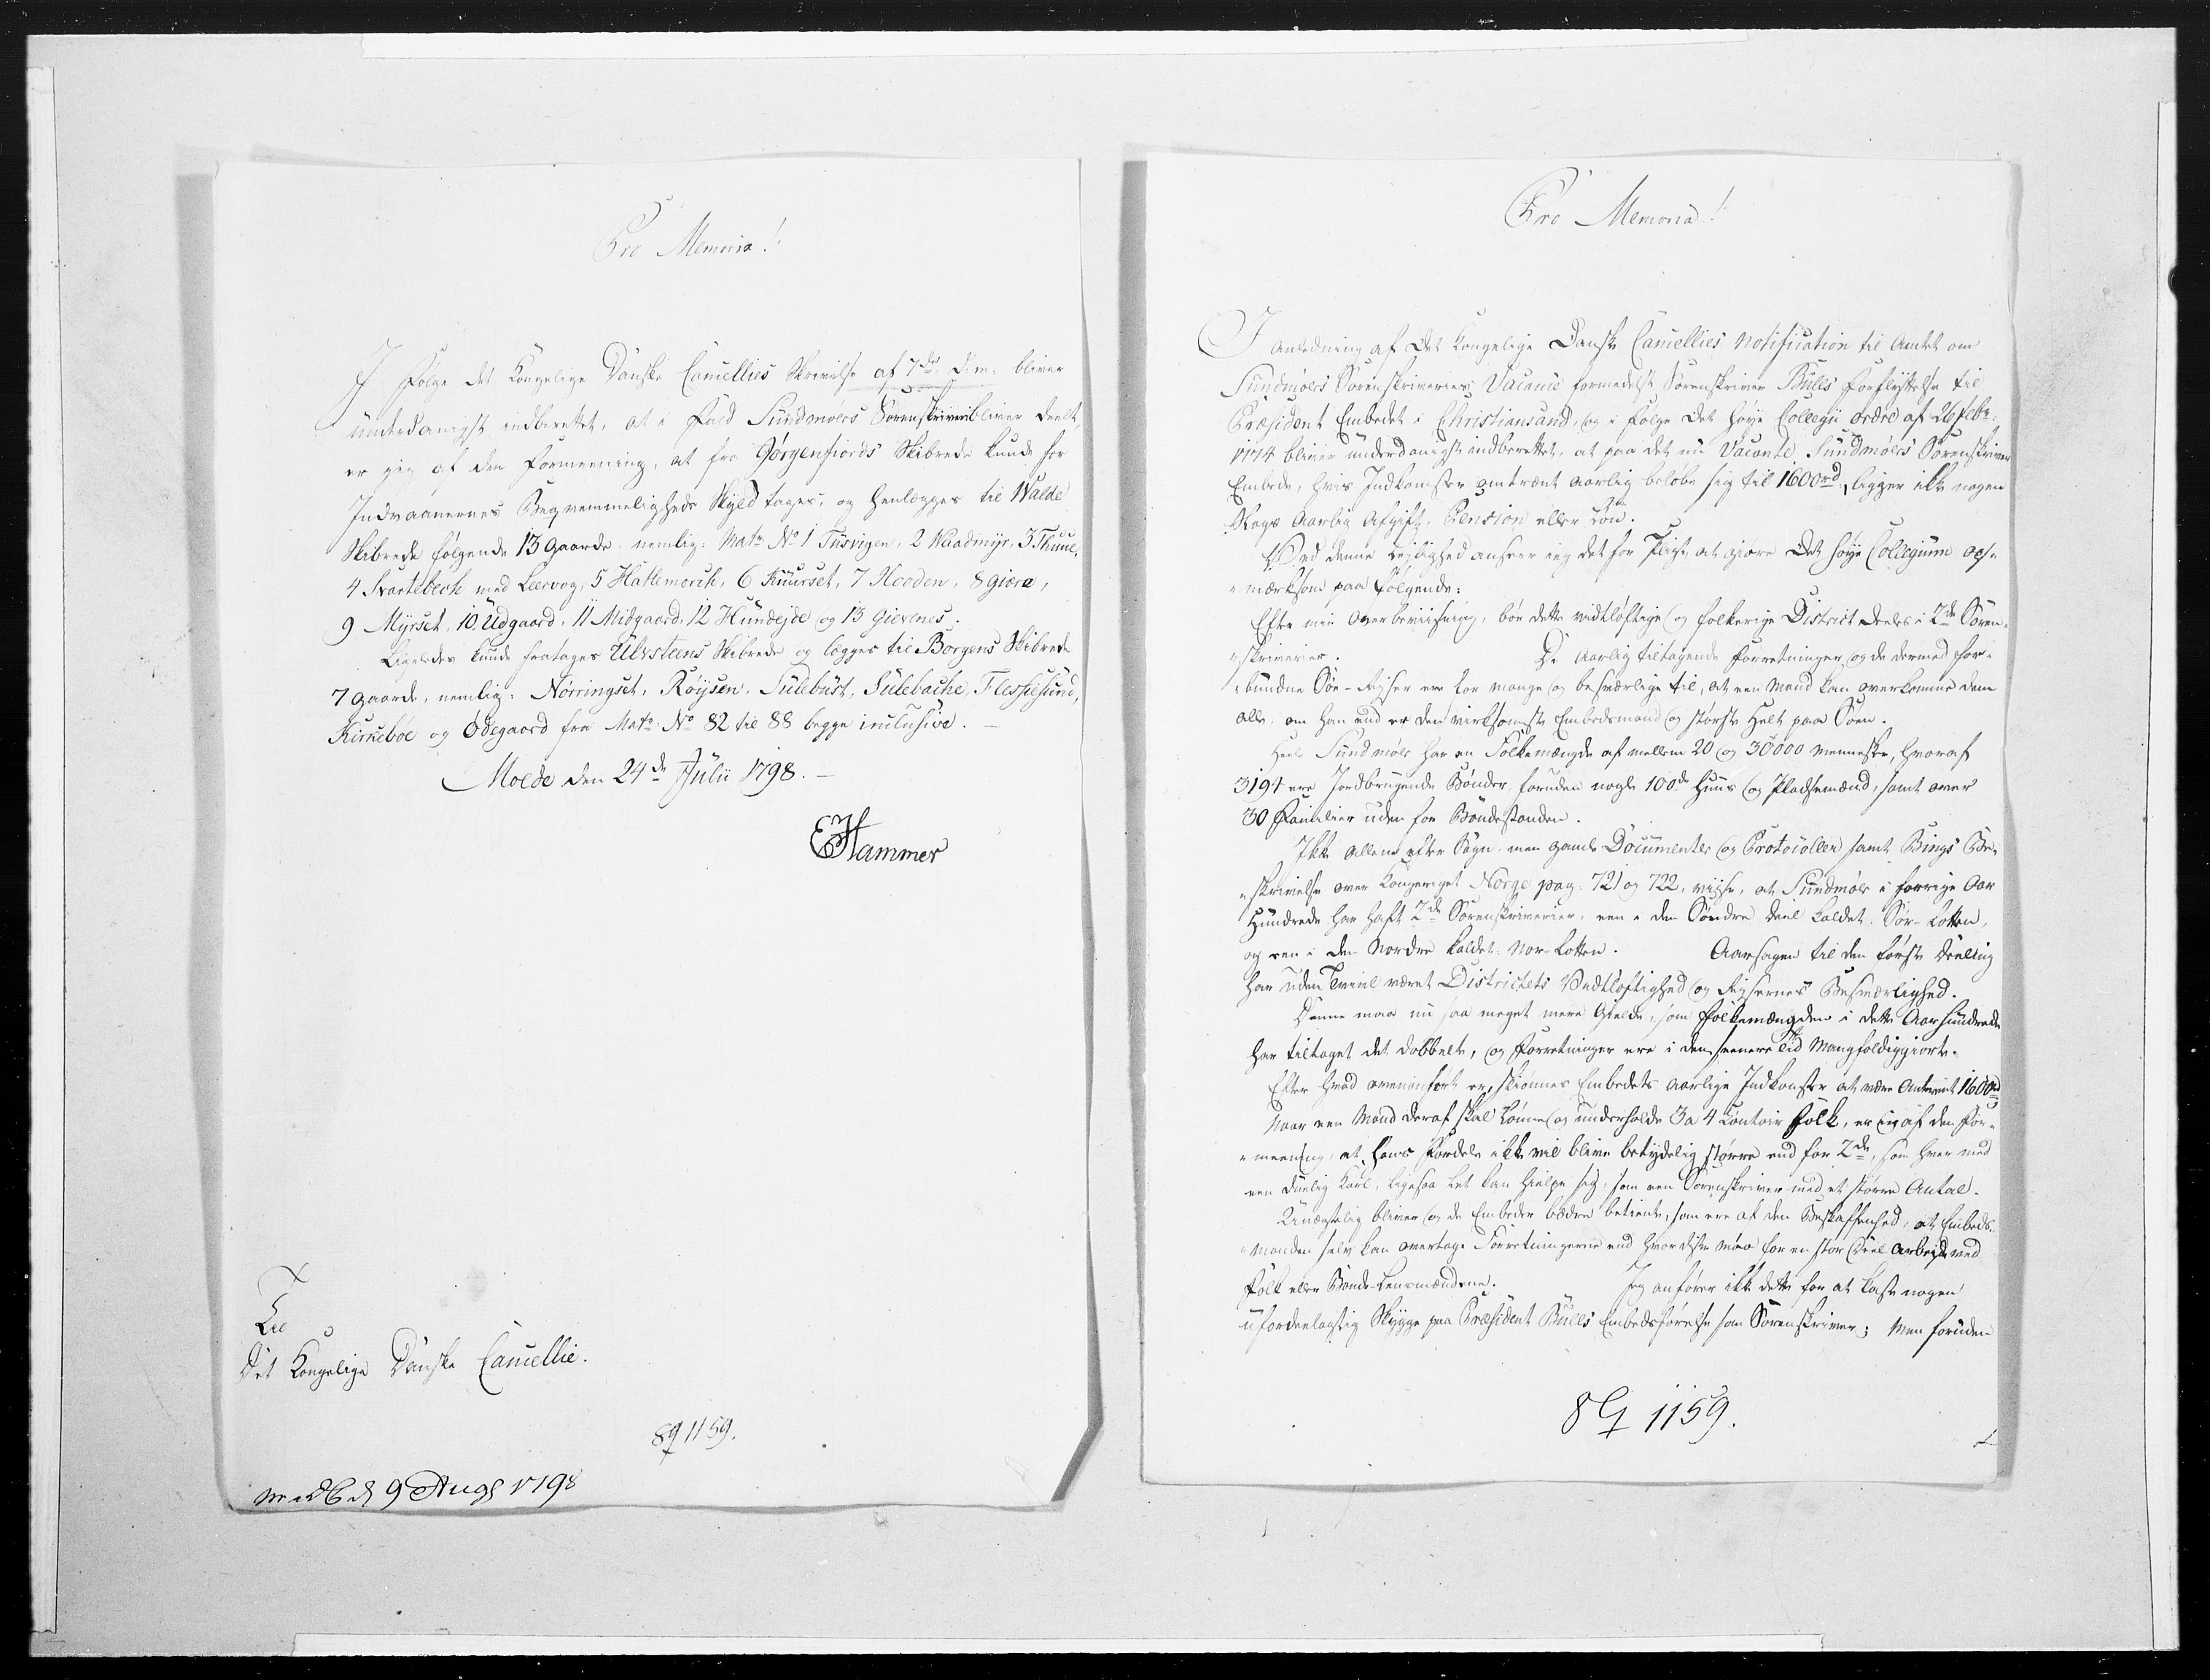 Pro Memoria!
I Følge det Kongelige Danske Cancellies Skrivelse af 7de d. m. bliver
underdanigst indberettet, at i Fald Sundmøers Sorenskriveri bliver deelt,
er jeg af den Formeening, at fra Jørgenfiords Skibrede kunde for
Indvaanernes Beqvemmeligheds Skyld tages, og henlægges til Walde
Skibrede følgende 13 Gaarde, nemlig: Matr. No 1 Tusvigen, 2 Waadmyr, 3 Thuue,
4 Svartebech med Leervog, 5 Hatlemarck, 6 Kuurset, 7 Hooden, 8 Giære,
9 Myrset, 10 Udgaard, 11 Midgaard, 12 Hundejde og 13 Gievenes.
Ligeledes kunde fratages Ulvsteens Skibrede og lægges til Borgens Skibrede
7 Gaarde, nemlig: Nørringset, Røysen, Sulebust, Sulebache, Flessjesund,
Kirkebøe og Ødegaard fra Matr. No 82 til 88 begge inclusive.
Molde den 24de Julii 1798.
EHammer
Til
Det Kongelige Danske Cancellie.
89 1159.
9 Augs 1798
Pro Memoria!
I Anledning af Det Kongelige Danske Cancellies Notification til Amtet om
Sundmøers Sorenskriveries Vacance formedelst Sorenskriver Bulls Forflyttelse til
Præsident Embedet i Christiansand, og i Følge Det høye Collegii Ordre af 26 Febr.
1774 bliver underdanigst indberettet, at paa det nu Vacante Sundmøers Sorenskriver
Embede, hvis Indkomster omtrent aarlig beløbe sig til 1600 rd, ligger ikke nogen
Slags Aarlig Afgift, Pension eller Løn.
Ved denne Lejlighed anseer jeg det for Pligt, at gjøre Det høye Collegium op-
mærksom paa følgende:
Efter min Overbeviisning, bør dette vidtløftige og folkerige District deeles i 2de Soren-
skriverier. De Aarlig tiltagende Forretninger og de dermed for-
bundne Søe-Rejser ere for mange og besværlige til, at een Mand kan overkomme dem
alle, om han end er den virksomste Embedsmand og største Helt paa Søen.
Heele Sundmøer har en Folkemængde af mellem 20 og 30000 Mennesker, hvoraf
3194 ere Jordbrugende Bønder, foruden nogle 100de Huus og Pladsemænd, samt over
30 Familier uden for Bondestanden.
Ikke allene efter Sagn, men gamle Documenter og Protocoller samt Bings Be-
skrivelse over Kongeriget Norge pag: 721 og 722, viise, at Sundmøer i forrige Aar
Hundrede har haft 2de Sorenskriverier, een i den Søndre Deel kaldet Sør-Lotten,
og een i den Nordre kaldet Nor-Lotten. Aarsagen til den første Deeling
har uden Tvivl været Districtets Vidtløftighed og Rejsernes Besværlighed.
Denne maa nu saa meget mere Gielde, som Folkemængden i dette Aarhundrede
har tiltaget det dobbelte, og Forretninger ere i den senere Tid Mangfoldiggiorte.
Efter hvad ovenanført er, skiønnes Embedets aarlige Indkomster at være Omtrent 1600 rd
Naar een Mand deraf skal lønne og underholde 3 a 4 Contoir Folk, er jeg af den For-
meening, at hans Fordele ikke vil blive betydelig større end for 2de, som hver med
een duelig Karl, ligesaa let kan hielpe sig, som een Sorenskriver med et større Antal.
Unægtelig bliver og de Embeder bedre betiente, som ere af den Beskaffenhed, at Embeds-
Manden selv kan overtage Forretningerne end hvor disse maae for en stor Deel Arbejde ved
Folk eller Bonde-Lensmændene. Jeg anfører ikke dette for at kaste nogen
ufordeelagtig Skygge paa Præsident Bulls Embedsførelse som Sorenskriver; Men foruden
89 1159.